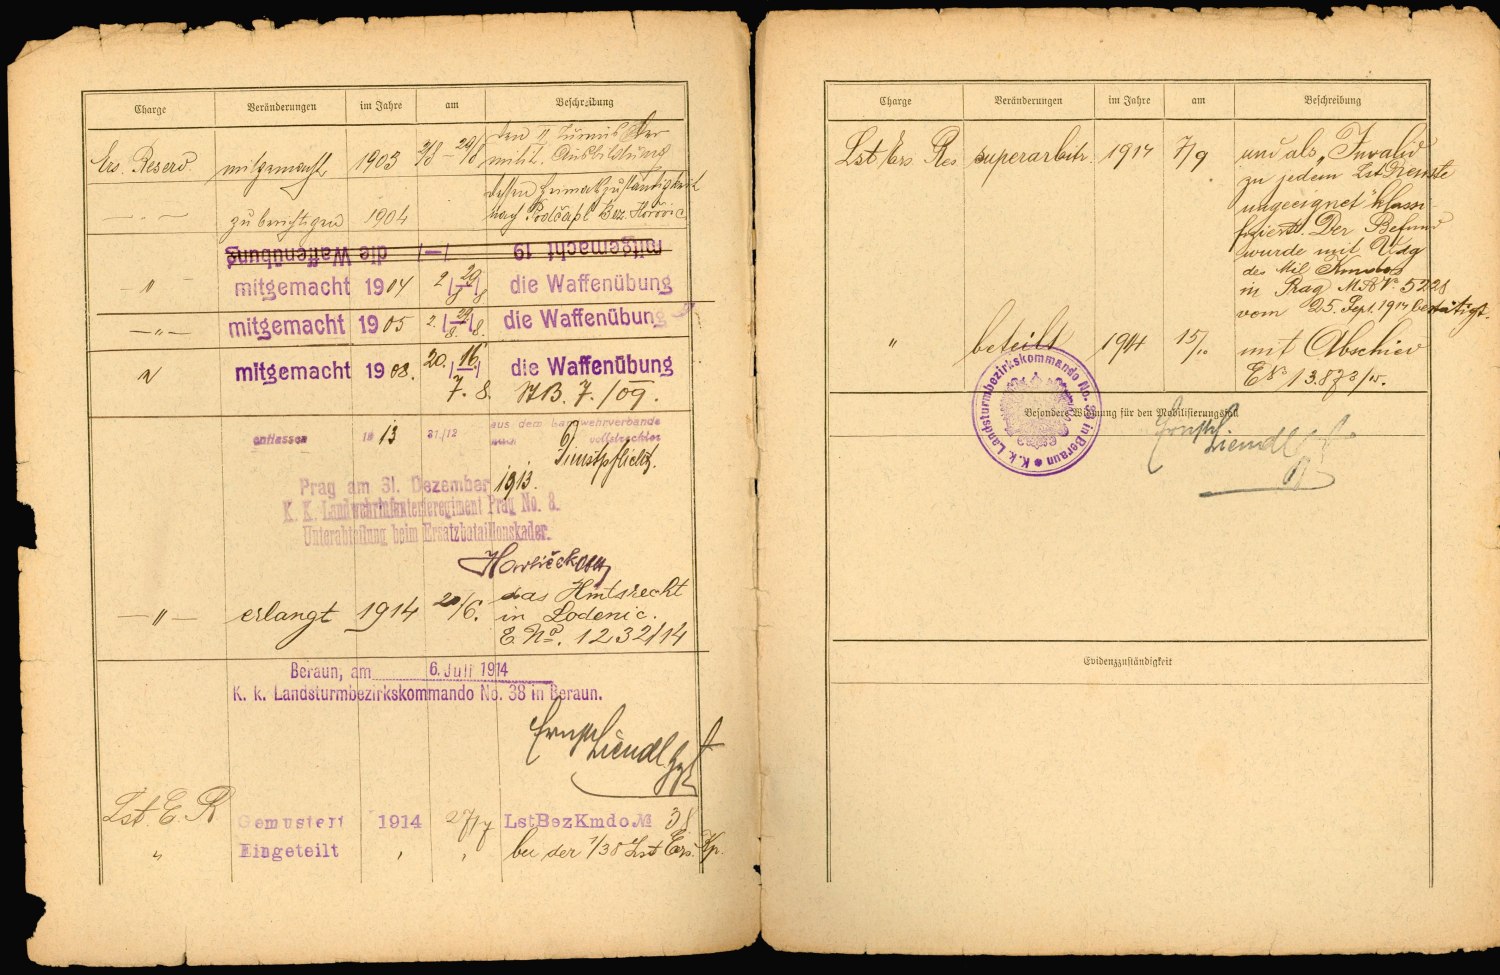 Charge Veränderungen im Jahre am Beschreibung
Ers. Reserv. mitgemacht 1903 2/8 – 29/8
milit. Ausbildung
dessen Heimatzuständigkeit
— " — zu berichtigen 1904 nach Podčapl Bez. Hořovic
mitgemacht 19 |—| die Waffenübung
— " — mitgemacht 1904 2/8 |—| 29/8 die Waffenübung
— " — mitgemacht 1905 2./8. |—| 29/8. die Waffenübung
" mitgemacht 1908. 20./7. |—| 16./8. die Waffenübung
HB. 7./09.
entlassen 1913 31./12 aus dem Landwehrverbande
nach vollstreckter
Dienstpflicht.
1913.
Prag am 31. Dezember
K. K. Landwehrinfanterieregiment Prag No. 8.
Unterabteilung beim Ersatzbataillonskader.
— " — erlangt 1914 20/6. das Hmtsrecht
in Lodenic.
E. No. 1232/14
Beraun, am 6. Juli 1914
K. k. Landsturmbezirkskommando No. 38 in Beraun.
Ernst Liendl
Lst. E. R Gemustert 1914 27/7 LstBezKmdo № 38
" Eingeteilt " " bei der 1/38 Lst Ers. Kp.
Charge Veränderungen im Jahre am Beschreibung
Lst Ers Res superarbitr. 1914 7/9 und als "Invalid
zu jedem Lst Dienste
ungeeignet" klassi-
fiziert. Der Befund
wurde mit Vdg
des Mil Kmdos
in Prag MA Nr. 5228
vom 25. Sept. 1914 bestätigt.
" beteilt 1914 15/10 mit Abschied
E No 13.873/15.
K. k. Landsturmbezirkskommando No. 38 in Beraun
Besondere Widmung für den Mobilisierungsfall
Ernst Liendl
Evidenzzuständigkeit